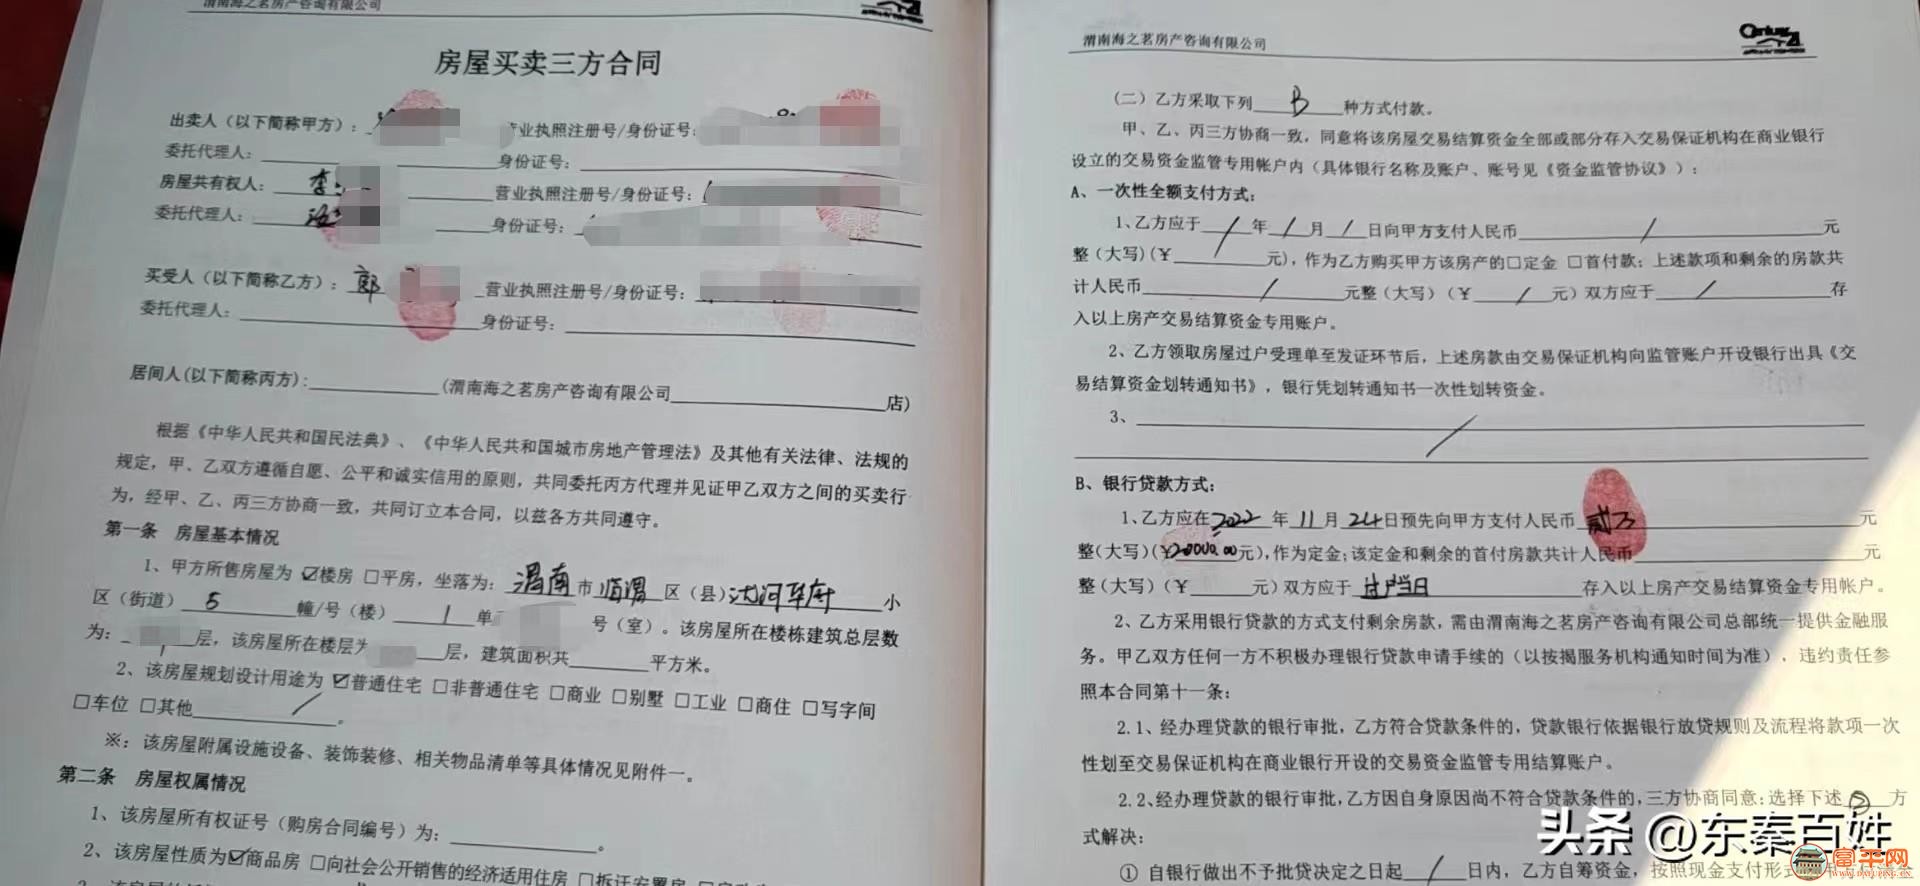 渭南海之茗房产咨询有限公司
房屋买卖三方合同
出卖人（以下简称甲方）：
营业执照注册号/身份证号：
委托代理人：
身份证号：
房屋共有权人：李
营业执照注册号/身份证号：
委托代理人：
身份证号：
买受人（以下简称乙方）：郎
营业执照注册号/身份证号：
委托代理人：
身份证号：
居间人(以下简称丙方)：（渭南海之茗房产咨询有限公司 店）
根据《中华人民共和国民法典》、《中华人民共和国城市房地产管理法》及其他有关法律、法规的
规定，甲、乙双方遵循自愿、公平和诚实信用的原则，共同委托丙方代理并见证甲乙双方之间的买卖行
为，经甲、乙、丙三方协商一致，共同订立本合同，以兹各方共同遵守。
第一条 房屋基本情况
1、甲方所售房屋为 ☑楼房 □平房，坐落为：渭南市临渭区（县）沋河华府小
区（街道）5幢/号（楼）1单 号（室）。该房屋所在楼栋建筑总层数
为： 层，该房屋所在楼层为 层，建筑面积共 平方米。
2、该房屋规划设计用途为 ☑普通住宅 □非普通住宅 □商业 □别墅 □工业 □商住 □写字间
□车位 □其他 / 。
※：该房屋附属设施设备、装饰装修、相关物品清单等具体情况见附件一。
第二条 房屋权属情况
1、该房屋所有权证号（购房合同编号）为： 。
2、该房屋性质为☑商品房 □向社会公开销售的经济适用住房 □拆迁安置房
渭南海之茗房产咨询有限公司
Century 21
（二）乙方采取下列 B 种方式付款。
甲、乙、丙三方协商一致，同意将该房屋交易结算资金全部或部分存入交易保证机构在商业银行
设立的交易资金监管专用帐户内（具体银行名称及账户、账号见《资金监管协议》）：
A、一次性全额支付方式：
1、乙方应于 / 年 / 月 / 日向甲方支付人民币 / 元
整（大写）(¥ / 元)，作为乙方购买甲方该房产的□定金 □首付款；上述款项和剩余的房款共
计人民币 / 元整（大写）（¥ / 元）双方应于 / 存
入以上房产交易结算资金专用账户。
2、乙方领取房屋过户受理单至发证环节后，上述房款由交易保证机构向监管账户开设银行出具《交
易结算资金划转通知书》，银行凭划转通知书一次性划转资金。
3、 /
B、银行贷款方式：
1、乙方应在 2022 年 11 月 24 日预先向甲方支付人民币 贰万 元
整（大写）(¥20000.00元)，作为定金；该定金和剩余的首付房款共计人民币 元
整（大写）(¥ 元）双方应于 过户当日 存入以上房产交易结算资金专用帐户。
2、乙方采用银行贷款的方式支付剩余房款，需由渭南海之茗房产咨询有限公司总部统一提供金融服
务。甲乙双方任何一方不积极办理银行贷款申请手续的（以按揭服务机构通知时间为准），违约责任参
照本合同第十一条：
2.1、经办理贷款的银行审批，乙方符合贷款条件的，贷款银行依据银行放贷规则及流程将款项一次
性划至交易保证机构在商业银行开设的交易资金监管专用结算账户。
2.2、经办理贷款的银行审批，乙方因自身原因尚不符合贷款条件的，三方协商同意：选择下述 ② 方
式解决：
① 自银行做出不予批贷决定之日起 / 日内，乙方自筹资金，按照现金支付形式
头条 @东秦百姓
富平网